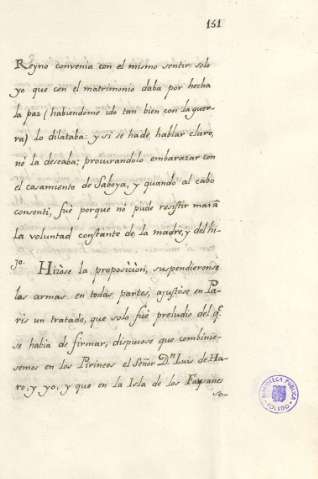 151
Reyno convenia con el mismo sentir solo
yo que con el matrimonio daba por hecha
la paz (habiendome ido tan bien con la guer-
ra) lo dilataba: y si se ha de hablar claro,
nó la deseaba: procurandolo embarazar con
el casamiento de Saboya, y quando al cabo
consentí, fué porque nó pude resistir mas á
la voluntad constante de la madre, y del hi-
jo. Hizose la proposicion, suspendieronse
las armas en todas partes, ajustóse en Pa-
ris un tratado, que solo fué preludio del q.e
se habia de firmar, dispusose que combinie-
semos en los Pirineos el Señor D.n Luis de Ha-
ro, y yo, y que en la Isla de los Faysanes
se-
BIBLIOTECA PUBLICA
TOLEDO